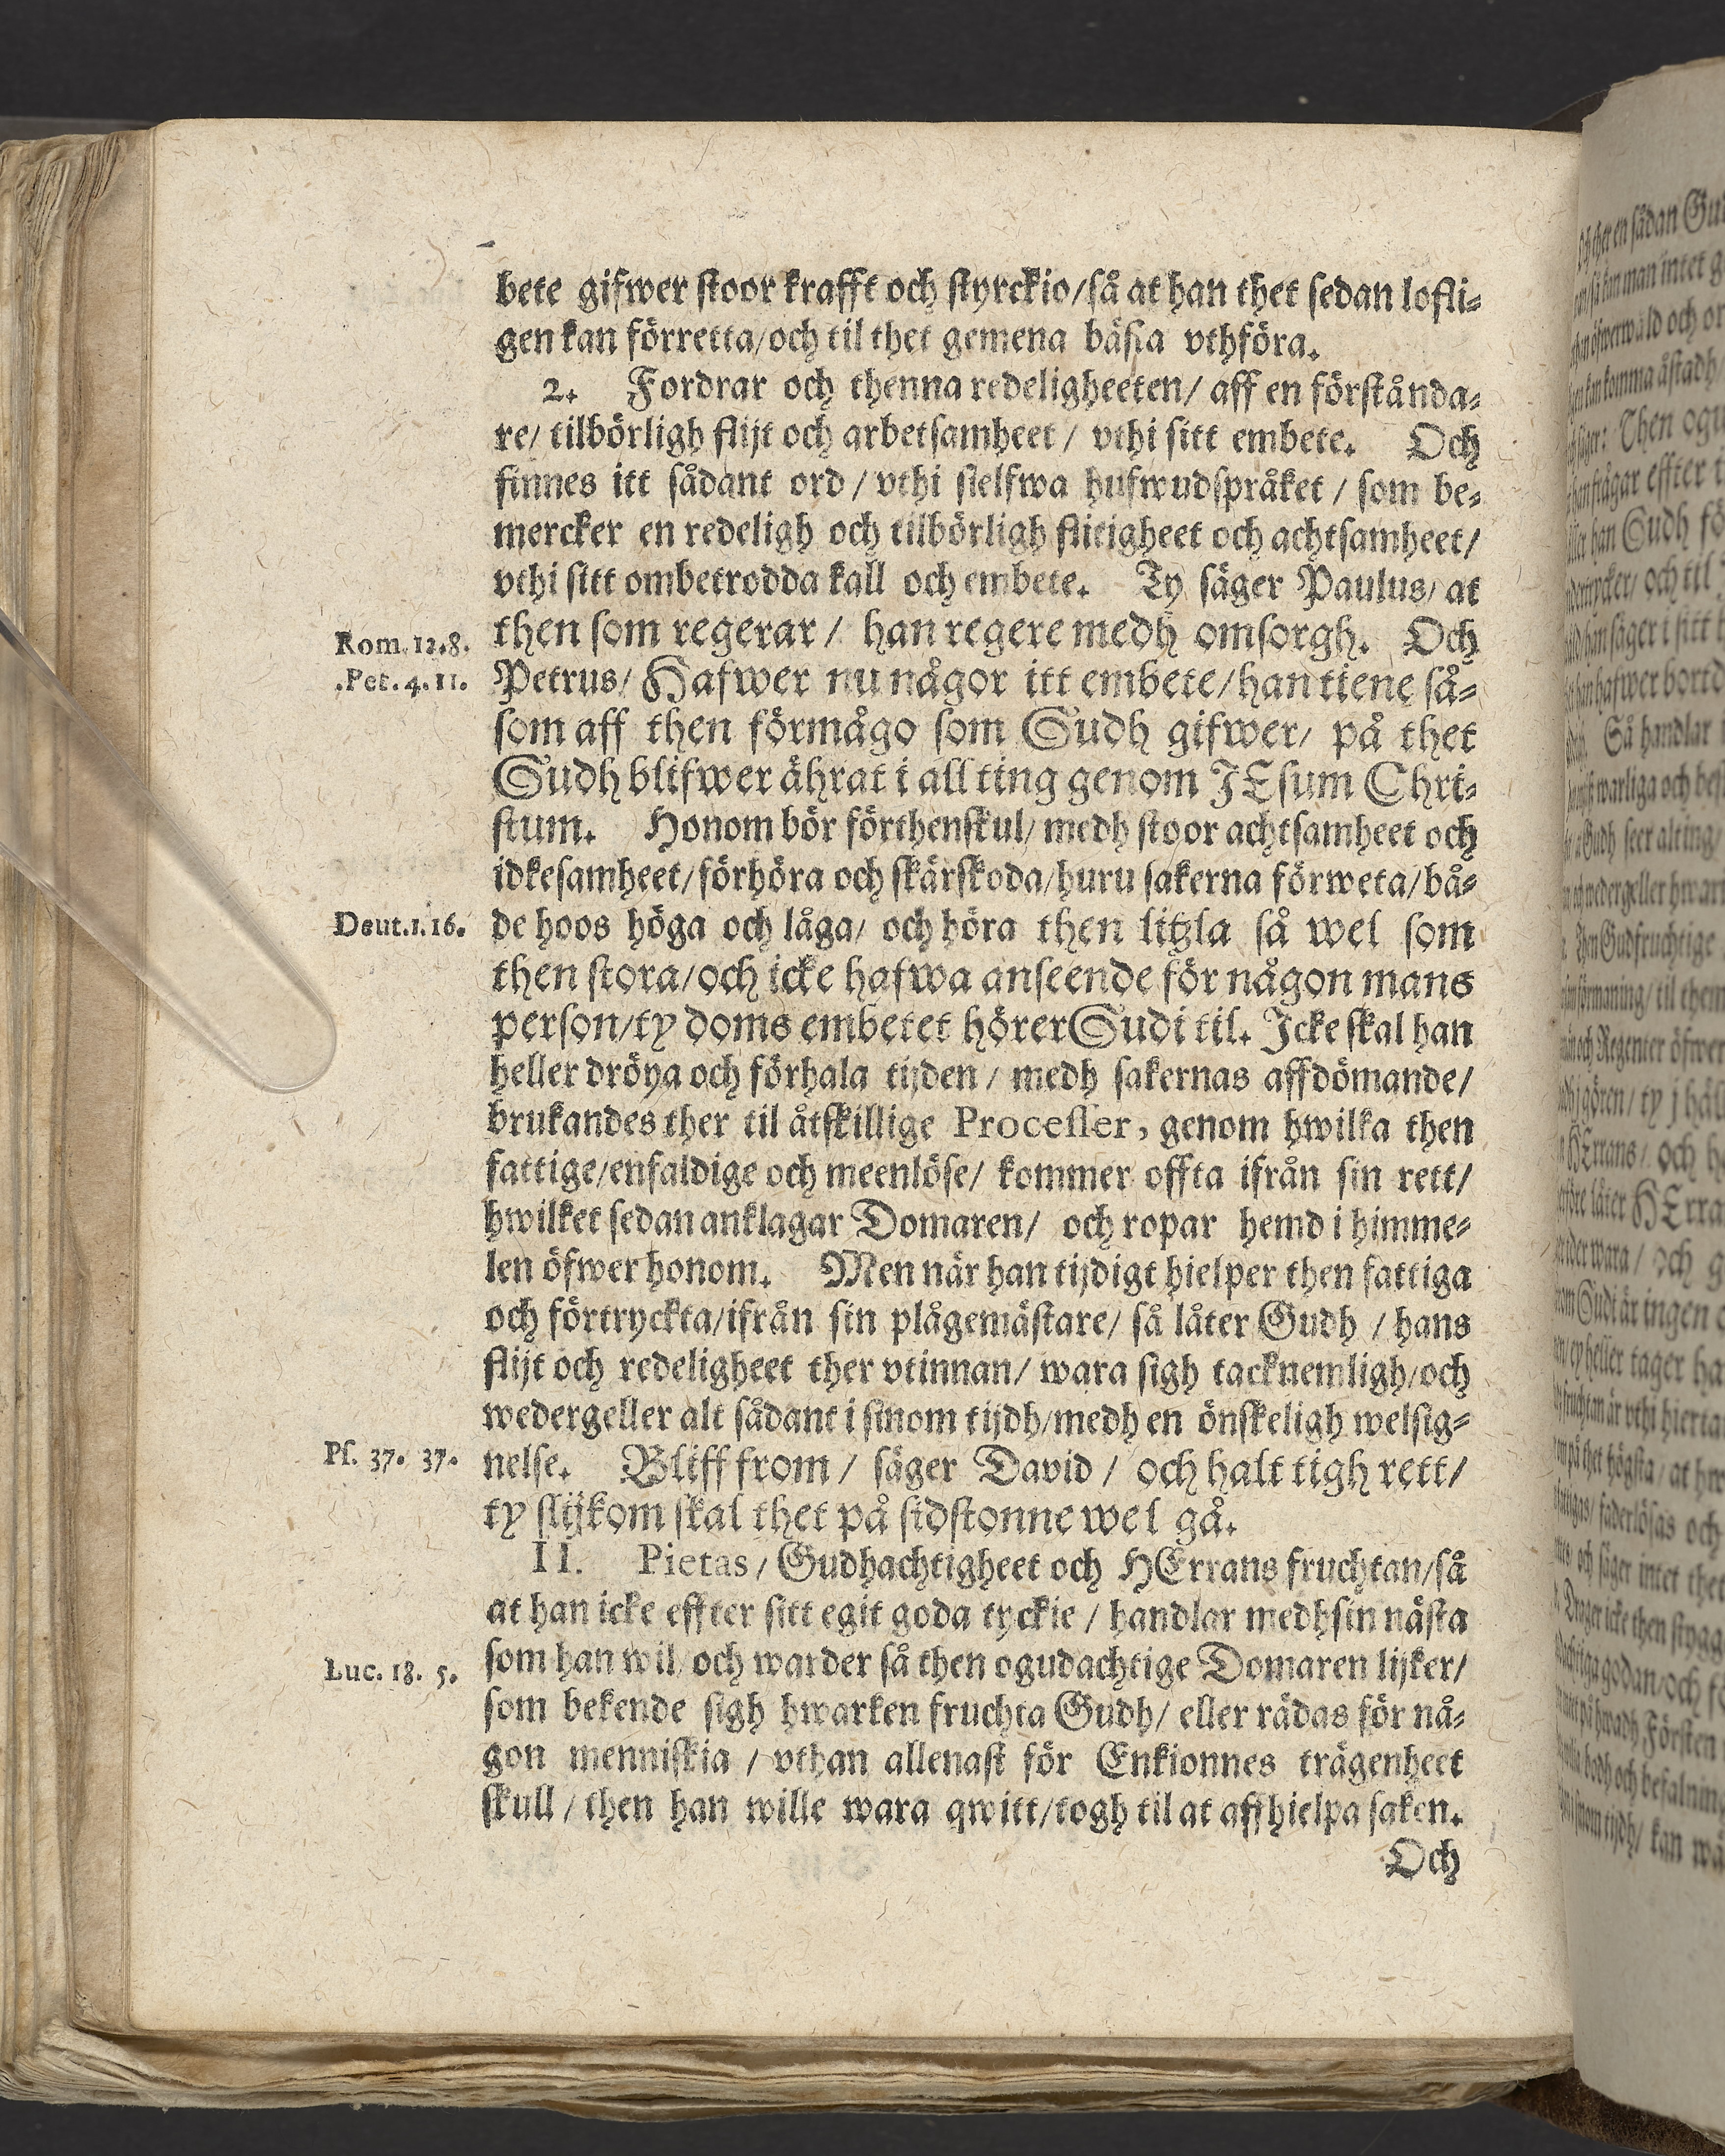 bete gifwer stoor krafft och styrckio/så at han thet sedan lofli-
gen kan förretta/och til thet gemena bästa vthföra.
2. Fordrar och thenna redeligheeten/ aff en förstånda-
re/ tilbörligh flijt och arbetsamheet / vthi sitt embete. Och
finnes itt sådant ord / vthi sielfwa hufwudspråket / som be-
mercker en redeligh och tilbörligh flitigheet och achtsamheet/
vthi sitt ombetrodda kall och embete. Ty säger Paulus/ at
Rom. 12.8. then som regerar / han regere medh omsorgh. Och
.Pet. 4. 11. Petrus/ Hafwer nu någor itt embete/han tiene så-
som aff then förmågo som Gudh gifwer/ på thet
Gudh blifwer ährat i all ting genom JEsum Chri-
stum. Honom bör förthenskul/ medh stoor achtsamheet och
idkesamheet/förhöra och skärskoda/huru sakerna förweta/bå-
Deut. 1. 16. de hoos höga och låga/ och höra then litzla så wel som
then stora/och icke hafwa anseende för någon mans
person/ty doms embetet hörer Gudi til. Icke skal han
heller dröya och förhala tijden / medh sakernas affdömande/
brukandes ther til åtskillige Processer, genom hwilka then
fattige/enfaldige och meenlöse/ kommer offta ifrån sin rett/
hwilket sedan anklagar Domaren/ och ropar hemd i himme-
len öfwer honom. Men när han tijdigt hielper then fattiga
och förtryckta/ifrån sin plågemästare/ så låter Gudh / hans
flijt och redeligheet ther vtinnan/ wara sigh tacknemligh/och
wedergeller alt sådant i sinom tijdh/medh en önskeligh welsig-
Ps. 37. 37. nelse. Bliff from / säger David / och halt tigh rett/
ty slijkom skal thet på sidstonne wel gå.
II. Pietas / Gudhachtigheet och HErrans fruchtan/så
at han icke effter sitt egit goda tyckie / handlar medh sin nästa
Luc. 18. 5. som han wil/ och warder så then ogudachtige Domaren lijker/
som bekende sigh hwarken fruchta Gudh/ eller rädas för nå-
gon menniskia / vthan allenast för Enkionnes trägenheet
skull / then han wille wara qwitt/togh til at affhielpa saken.
Och